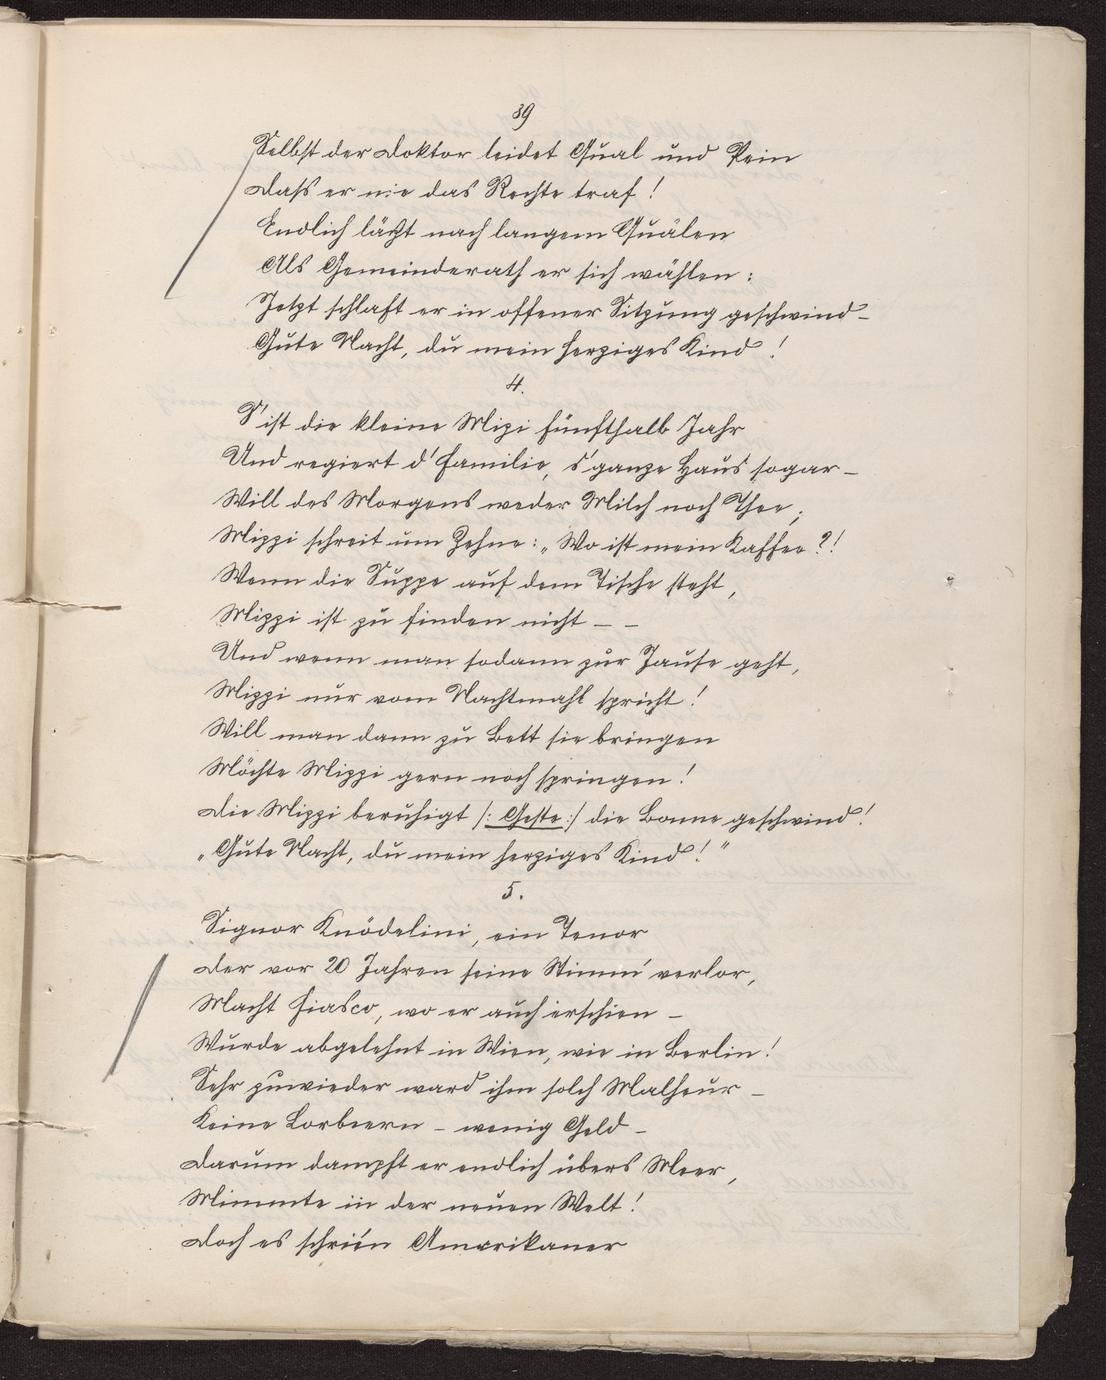 39
Selbst der Doktor leidet Qual und Pein
Dass er nie das Rechte traf!
Endlich läßt nach langem Quälen
Als Gemeinderath er sich wählen:
Jetzt schlaft er in offener Sitzung geschwind –
Gute Nacht, du mein herziges Kind!
4.
S' ist die kleine Mizi fünfthalb Jahr
Und regiert d' Familie, s' ganze Haus sogar –
Will des Morgens weder Milch noch Thee;
Mizzi schreit um Zehne: „Wo ist mein Kaffee?!
Wenn die Suppe auf dem Tische steht,
Mizzi ist zu finden nicht – –
Und wenn man sodann zur Jause geht,
Mizzi nur vom Nachtmahl spricht!
Will man dann zu Bett sie bringen
Möchte Mizzi gern noch springen!
Die Mizzi beruhigt /: Geste :/ die Bonne geschwind!
„Gute Nacht, du mein herziges Kind!"
5.
Signor Knödelini, ein Tenor
Der vor 20 Jahren seine Stimm' verlor,
Macht Fiasco, wo er auch erschien –
Wurde abgelehnt in Wien, wie in Berlin!
Sehr zuwieder ward ihm solch Malheur –
Keine Lorbeern – wenig Geld –
Darum dampft er endlich übers Meer,
Mimmte in der neuen Welt!
Doch es schrien Amerikaner